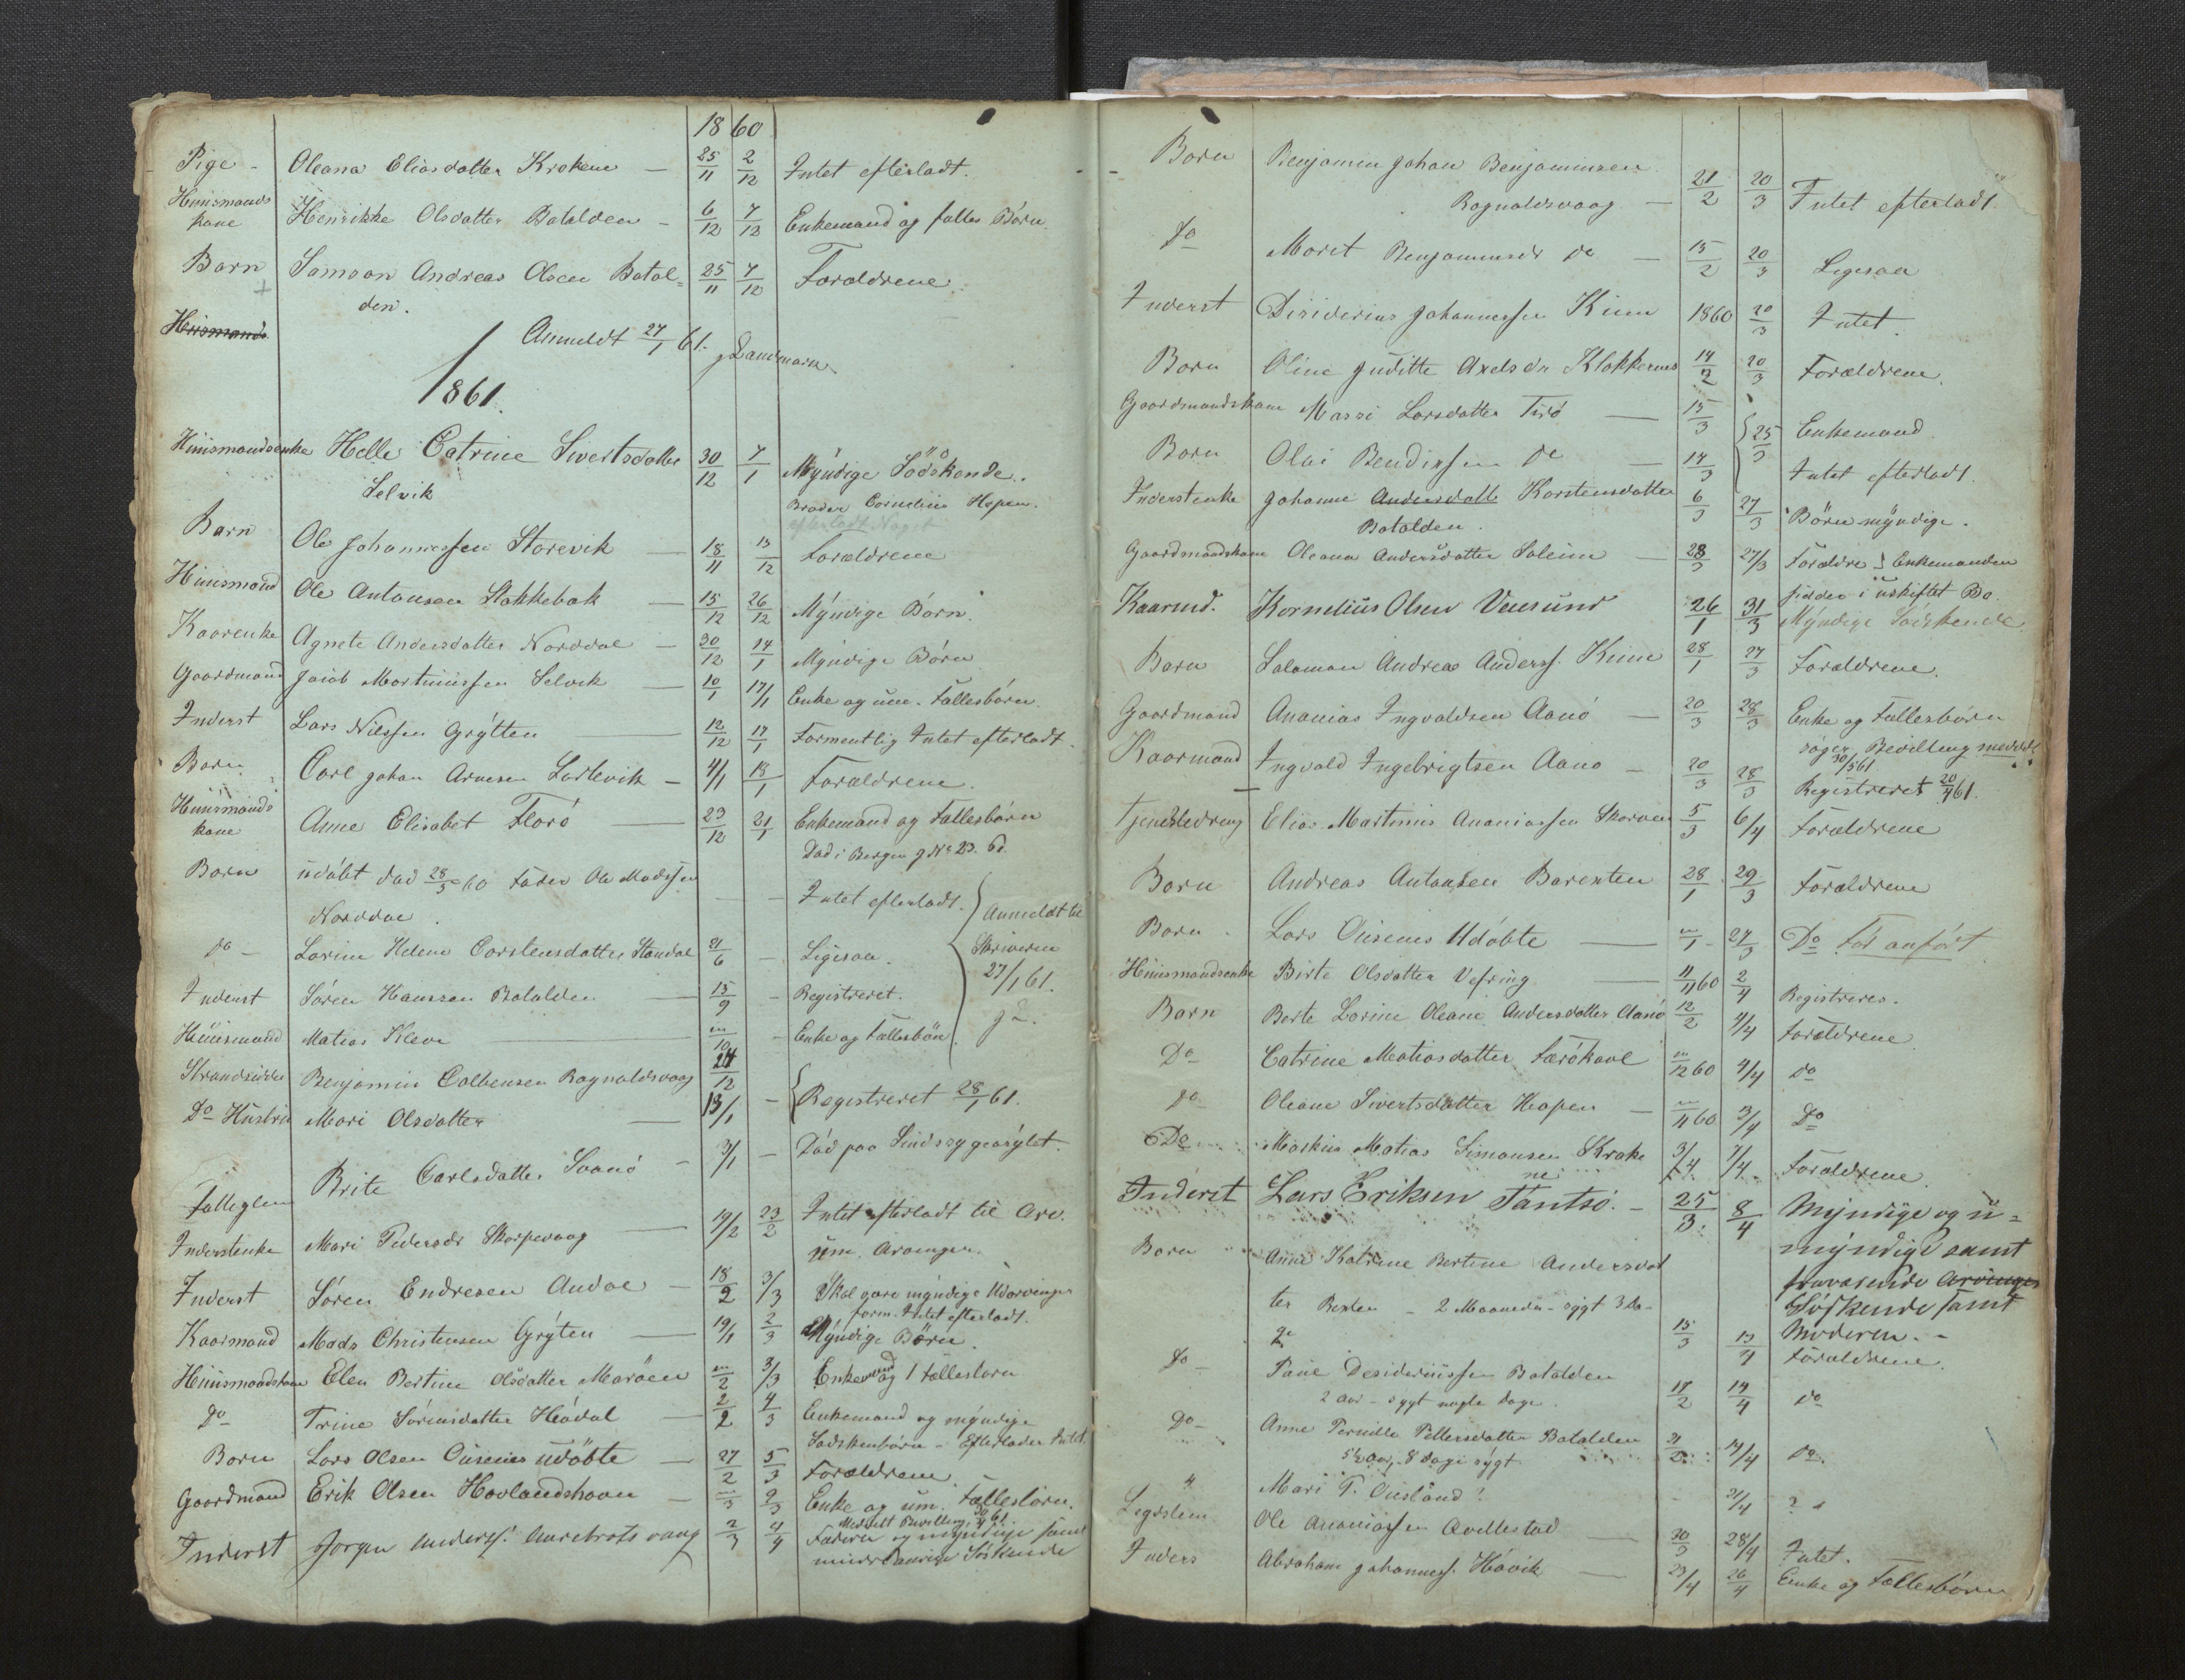 18 60
Pige - Oleana Eliasdatter Krokene — 25/11 2/12 Intet efterladt.
Huusmands
kone Henrikke Olsdatter Batalden - 6/12 7/12 Enkemand og fælles Börn
Barn Samson Andreas Olsen Batal= 25/11 7/12 Forældrene.
den.
Huusmands
Anmeldt 27/1 61. Landmark
1861.
Huusmandsenke Helle Catrine Sivertsdatter 30/12 7/1 Myndige Södskende.
Selvik Broder Cornelius Hopen.
efterladt Noget
Barn Ole Johannessen Storevik — 18/11 13/12 Forældrene
Huusmand Ole Antonsen Stakkebak — 15/12 26/12 Myndige Börn.
Kaarenke Agnete Andersdatter Norddal — 30/12 14/1 Myndige Börn
Gaardmand Jacob Martinussen Selvik — 10/1 17/1 Enke og um. Fællesbörn.
Inderst Lars Nilssen Grytten — 12/12 17/1 Formentlig Intet efterladt.
Barn Carl Johan Arnesen Larlevik — 4/1 18/1 Forældrene.
Huusmands
kone Anne Elisabet Florö — 23/12 21/1 Enkemand og Fællesbörn
Död i Bergen J No 23. 60.
Barn udöbt död 28/5 60 Fader Ole Madssen — — Intet efterladt. Anmeldt til
Norddal.
Do - Larine Helene Carstensdatter Standal 21/6 — Ligesaa. Skriveren
27/1 61.
Inderst Sören Hanssen Batalden — 15/9 - Registreret.
Huusmand Matias Kleve — m/10 - Enke og Fællesbörn.
Strandsidder Benjamin Colbensen Rognaldsvaag 24/12 - Registreret 28/1 61.
Do Hustru Mari Olsdatter — 13/1
Fatteglem Brite Carlsdatter Svanö - 3/1 - Död paa Sindssygeasylet.
Inderstenke Mari Pedersdr Skorpevaag — 19/2 23/2 Intet efterladt til Arv.
um. Arvinger.
Inderst Sören Endresen Andal — 18/2 3/3 Skal være myndige Udarvinger
form. Intet efterladt.
Kaarmand Mads Christensen Gryten — 19/1 2/3 Myndige Börn.
Huusmandskone Elen Bertine Olsdatter Maröen m/2 3/3 Enkemand og 1 Fællesbarn
Do Trine Sörensdatter Hödal — 2/2 4/3 Enkemand og myndige
Sødskenbörn - Efterlader Intet.
Barn Lars Olsen Ousenes udöbte — 27/2 5/3 Forældrene.
Gaardmand Erik Olsen Hovlandshavn — m/3 9/3 Enke og um. Fællesbörn.
Meddelt Bevilling 30/4 61.
Inderst Jorgen Anderss. Aurebrotsvaag 2/3 4/4 Faderen og myndige samt
mindreaarige Söskende
Barn Benjamin Johan Benjaminsen
Rognaldsvaag — 21/2 20/3 Intet efterladt.
Do Maret Benjaminsdr Do — 15/2 20/3 Ligesaa
Inderst Disiderius Johannessen Kinn 1860 20/3 Intet.
Barn Oline Juditte Axelsdr Klokkernes 14/2 20/3 Forældrene.
Gaardmandskone Massi Larsdatter Terö — 15/3 25/3 Enkemand
Barn Olai Bendixsen Do — 14/3 Intet efterladt.
Inderstenke Johanne Andersdatt Karstensdatter 6/3 27/3 Börn myndige.
Batalden.
Gaardmandskone Oleana Andersdatter Soleim — 28/3 27/3 Forældre Enkemanden
sidder i uskiftet Bo.
Kaarmd. Kornelius Olsen Veiesund 26/1 31/3 Myndige Söiskende
Barn Salamon Andreas Anderss. Kinn 28/1 27/3 Forældrene.
Gaardmand Ananias Ingvaldsen Aanö — 20/3 28/3 Enke og Fællesbörn
söger Bevilling meddelt
30/3 61
Kaarmand Ingvald Ingebrigtsen Aanö — 20/3 28/3 Registreret 20/4 61.
Tjenestedreng Elias Martinus Ananiassen Skorven 5/3 6/4 Forældrene
Barn Andreas Antonsen Barexten 28/1 29/3 Forældrene
Barn Lars Ousenes Udöbte — m/1 27/3 Do För anfört
Huusmandsenke Birte Olsdatter Vefring — 11/11 60 2/4 Registreres.
Barn Berte Larine Oleane Andersdatter Aanö 12/2 4/4 Forældrene.
Do Catrine Matiasdatter Færökavl m/12 60 4/4 Do
Do Oleane Sivertsdatter Hopen — m/11 60 3/4 Do
Do Markus Matias Simonsen Kroke 3/4 7/4 Forældrene.
ne
Inderst Lars Eriksen Tansö. — 25/3 8/4 Myndige og u=
myndige samt
fraværende Arvinger
Söskende samt
Moderen. -
Barn Anne Katrine Bertine Andersdat
ter Rexten - 2 Maaneder - sygt 3 Da-
ge 15/3 13/4 Forældrene.
Do - Paul Desideriussen Batalden
2 aar - sygt nogle Dage. 17/2 14/4 Do
Do - Anne Pernille Pettersdatter Batalden
5½ aar, 8 dage sygt 21/2 14/4 Do.
" Mari T. Ousland? 21/4 ?
Legdslem Ole Ananiassen Qvellestad — 30/3 28/4 Intet.
Inders Abraham Johanness. Hövik — 23/4 26/4 Enke og Fællesbörn